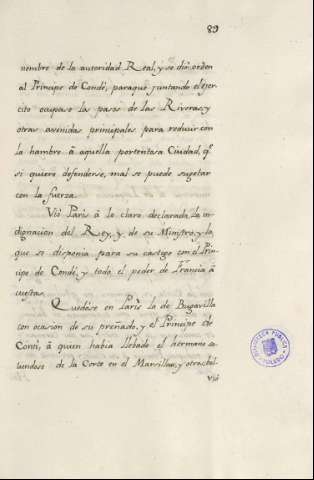 89
nombre de la autoridad Real, y se dio orden
al Principe de Condè, paraque juntando el exer-
cito ocupase los pasos de las Riveras, y
otras avenidas principales para reducir con
la hambre â aquella portentosa Ciudad, qe
si quiere defenderse, mal se puede sugetar
con la fuerza.
Viò Paris â lo claro declarada, la in-
dignacion del Rey, y de su Ministro, y lo
que se disponia para su castigo con el Prin-
cipe de Condè, y todo el poder de Francia â
cuestas.
Quedòse en Paris la de
con ocasion de su preñado, y el Principe de
Conti, â quien havia llebado el hermano sa-
liendose de la Corte en el
BIBLIOTECA PUBLICA
TOLEDO